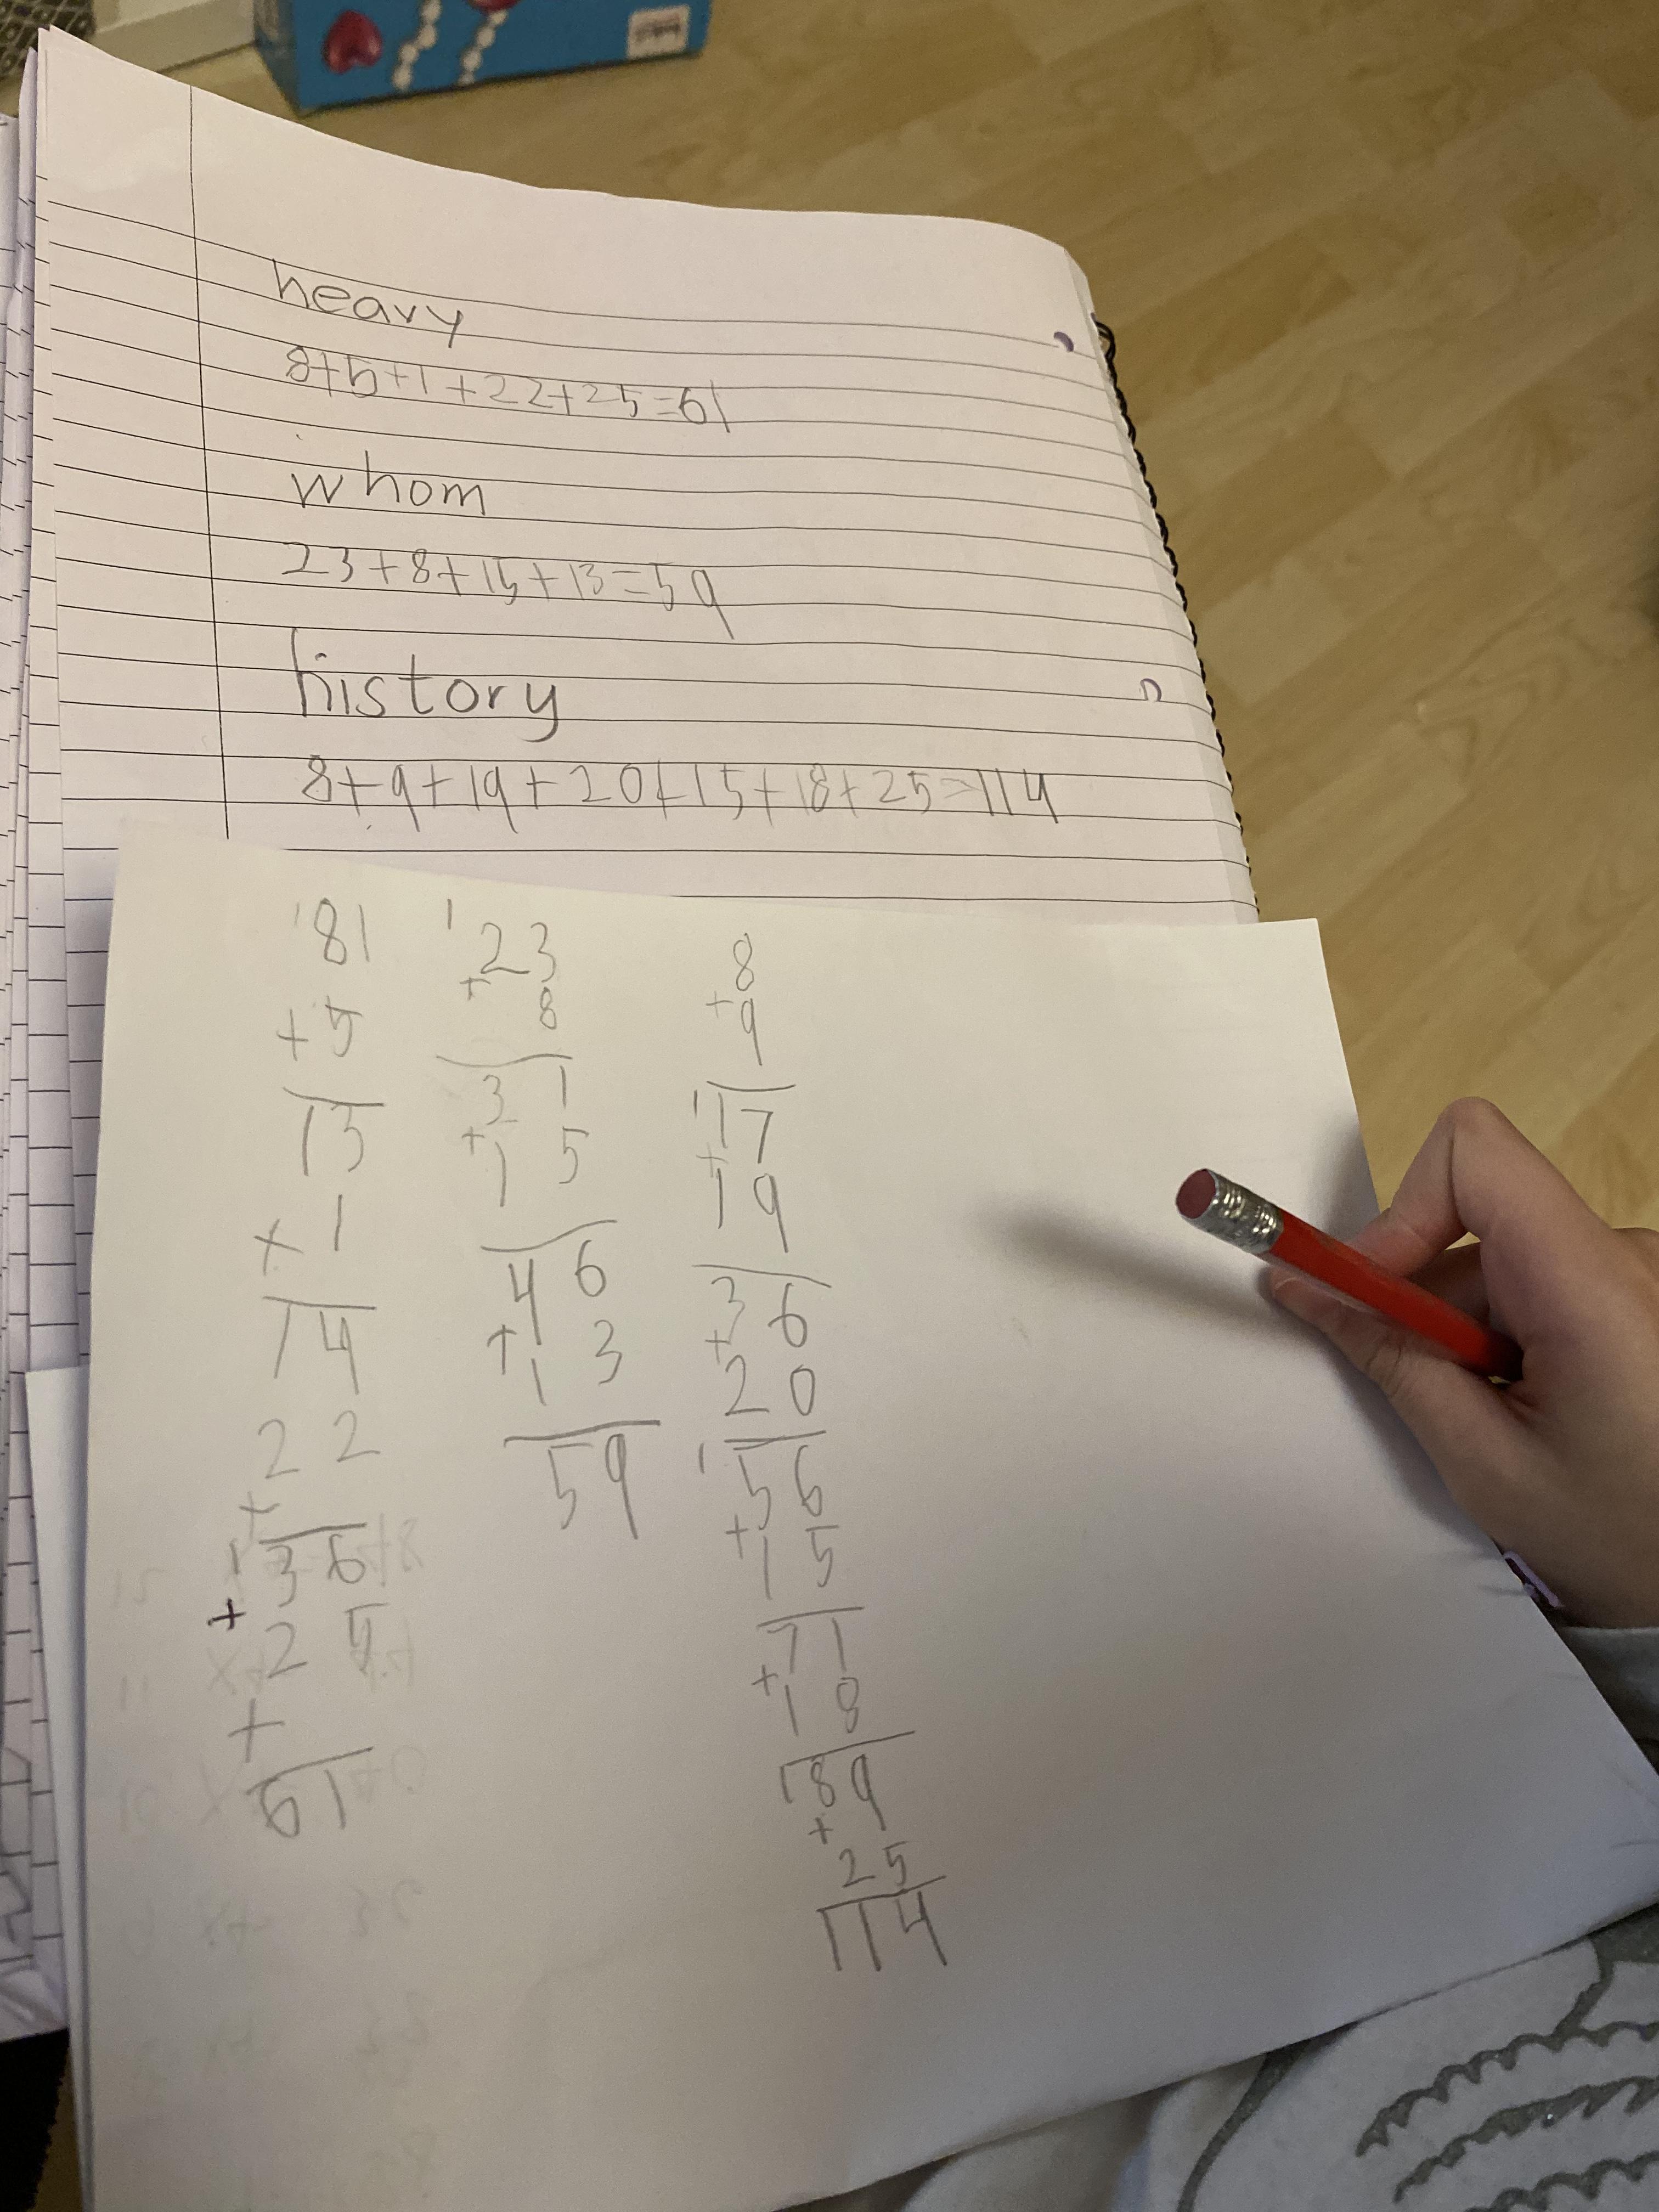 heavy
8+5+1+22+25=61
whom
23+8+15+13=59
history
8+9+19+20+15+18+25=114
181
+5
13
+1
14
22
+
136
+
25
+
61
123
+
8
31
+
15
46
+
13
59
8
+
9
117
+
19
36
+
20
156
+
15
71
+
18
189
+
25
114